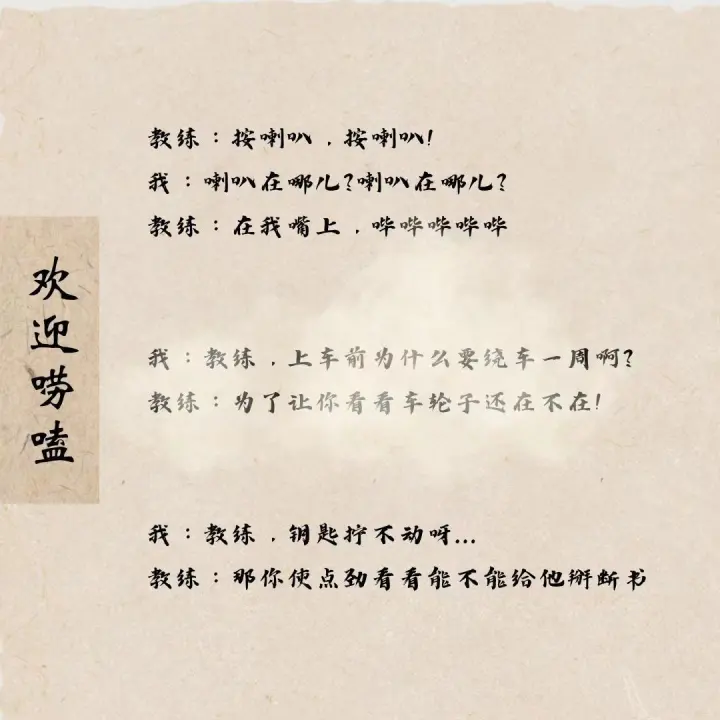 教练：按喇叭，按喇叭！
我：喇叭在哪儿？喇叭在哪儿？
教练：在我嘴上，哔哔哔哔哔
欢迎唠嗑
我：教练，上车前为什么要绕车一周啊？
教练：为了让你看看车轮子还在不在！
我：教练，钥匙拧不动呀...
教练：那你使点劲看看能不能给他掰断书